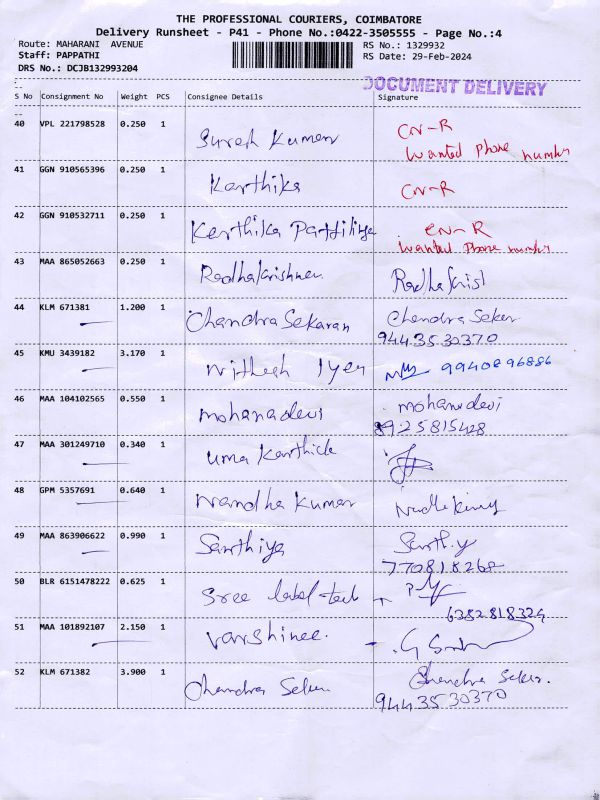 THE PROFESSIONAL COURIERS, COIMBATORE
Delivery Runsheet - P41 - Phone No.:0422-3505555 - Page No.:4
Route: MAHARANI AVENUE RS No.: 1329932
Staff: PAPPATHI RS Date: 29-Feb-2024
DRS No.: DCJB132993204
DOCUMENT DELIVERY
S No Consignment No Weight PCS Consignee Details Signature
40 VPL 221798528 0.250 1 Suresh Kumar CN-R
Wanted Phone number
41 GGN 910565396 0.250 1 Karthika CN-R
42 GGN 910532711 0.250 1 Karthika CN-R
Wanted Phone number
43 MAA 865052663 0.250 1 Radhakrishnan Radhakrist
44 KLM 671381 1.200 1 Chandra Sekaran Chandra Seker
9443530370
45 KMU 3439182 3.170 1 Nithesh Iyer 9940896886
46 MAA 104102565 0.550 1 mohanadevi mohanadevi
8925815428
47 MAA 301249710 0.340 1 uma Karthick
48 GPM 5357691 0.640 1 Nandha Kumar
49 MAA 863906622 0.990 1 Santhiya Santh.y
7708182
50 BLR 6151478222 0.625 1 Sree label tech
6382818324
51 MAA 101892107 2.150 1 Varshinee.
52 KLM 671382 3.900 1 Chandra Seker Chandra Seker.
9443530370